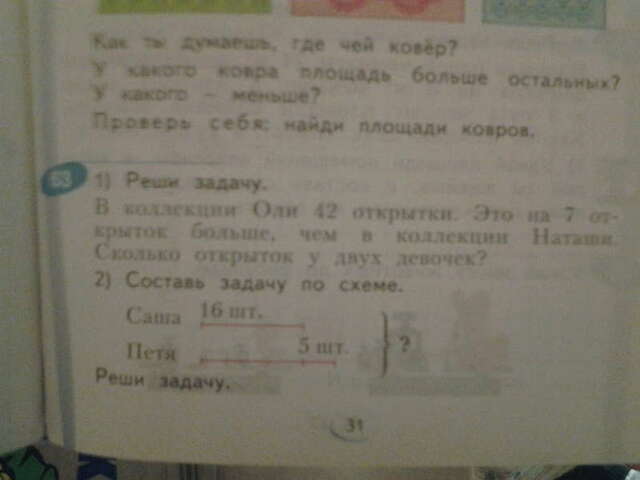 Как ты думаешь, где чей ковёр?
У какого ковра площадь больше остальных?
У какого – меньше?
Проверь себя: найди площади ковров.
1) Реши задачу.
В коллекции Оли 42 открытки. Это на 7 от-
крыток больше, чем в коллекции Наташи.
Сколько открыток у двух девочек?
2) Составь задачу по схеме.
Саша 16 шт.
Петя 5 шт. ?
Реши задачу.
31